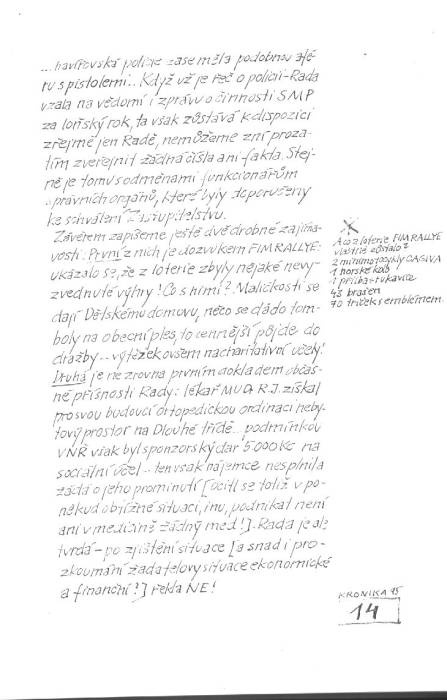 ...havířovská policie zase měla podobnou afé-
ru s pistolemi... Když už je řeč o policii - Rada
vzala na vědomí i zprávu o činnosti SMP
za loňský rok, ta však zůstává k dispozici
zřejmě jen Radě, nemůžeme z ní proza-
tím zveřejnit žádná čísla ani fakta. Stej-
ně je tomu s odměnami funkcionářům
správních orgánů, které byly doporučeny
ke schválení Zastupitelstvu.
Závěrem zapíšeme ještě dvě drobné zajíma-
vosti. První z nich je dozvukem FIM RALLYE:
ukázalo se, že z loterie zbyly nějaké nevy-
zvednuté výhry! Co s nimi? Maličkosti se
dají Dětskému domovu, něco se dá do tom-
boly na obecní ples, to cennější půjde do
dražby... výtěžek ovšem na charitativní účely!
Druhá je ne zrovna prvním dokladem občas-
né přísnosti Rady: lékař MUDr R.J. získal
pro svou budoucí ortopedickou ordinaci neby-
tový prostor na Dlouhé třídě... podmínkou
VNŘ však byl sponzorský dar 5 000 Kč na
sociální účel... ten však nájemce nesplnil a
žádá o jeho prominutí [ocitl se totiž v po-
někud obtížné situaci, inu, podnikat není
ani v medicíně žádný med!]. Rada je ale
tvrdá - po zjištění situace [a snad i pro-
zkoumání žadatelovy situace ekonomické
a finanční!] řekla NE!
A co z loterie FIM RALLYE
vlastně zůstalo?
2 minimotocykly CAGIVA
1 horské kolo
1 přilba + rukavice
45 brašen
70 triček s emblémem
KRONIKA 95
14